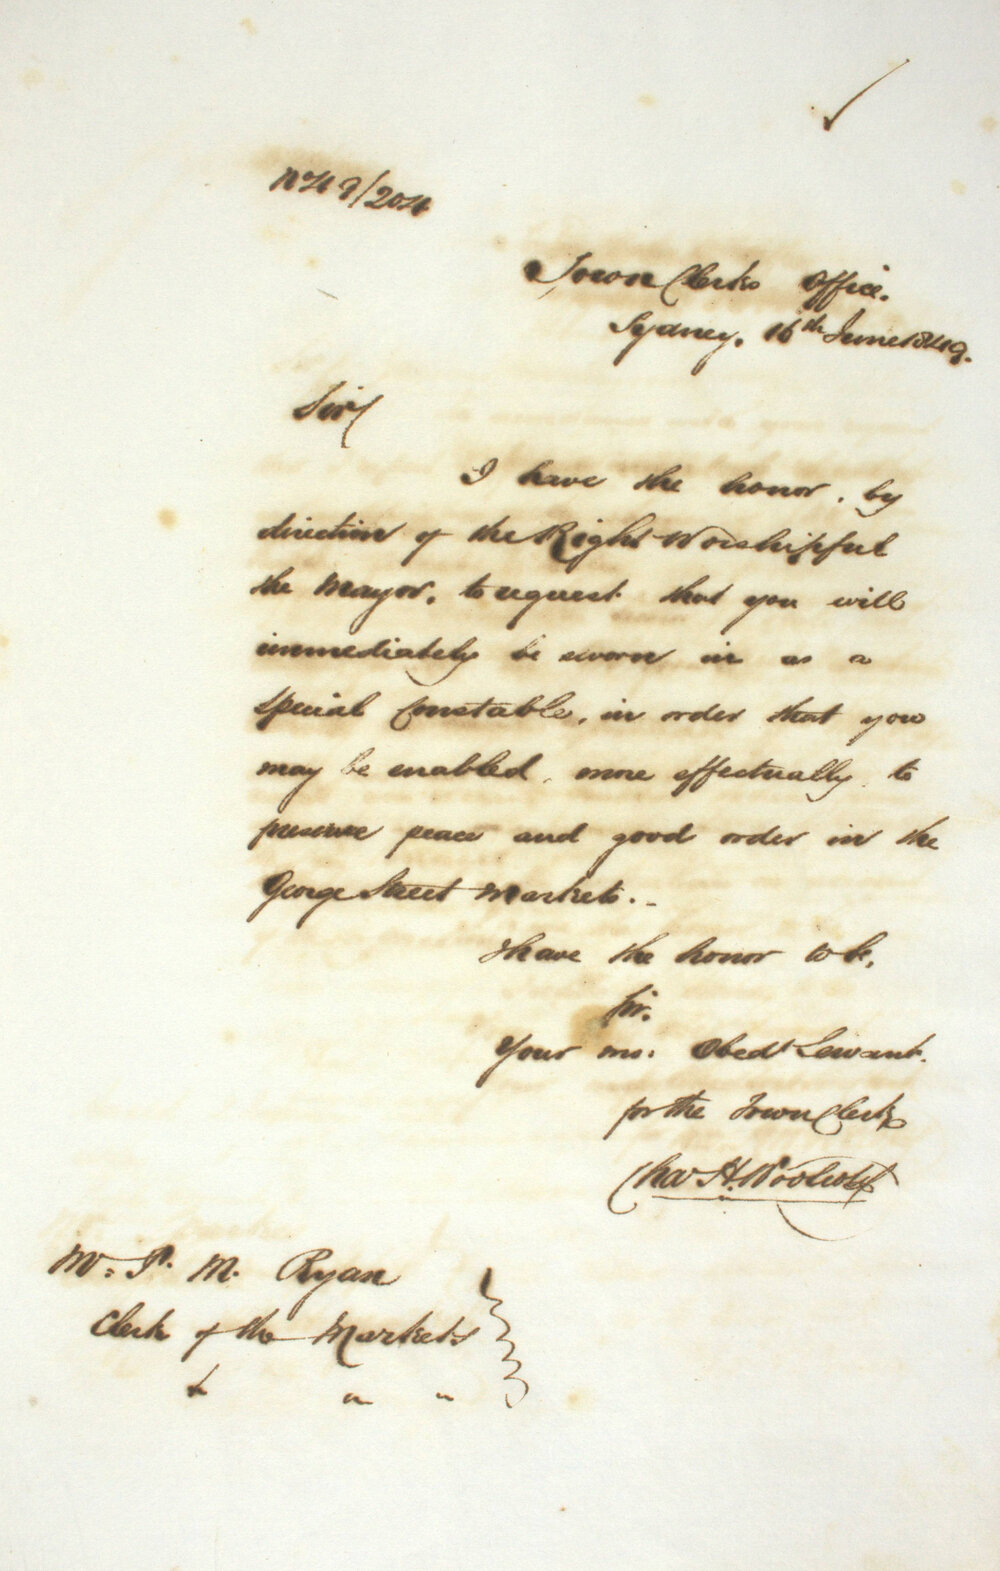 49/204
Town Clerks Office.
Sydney. 16th June 1849.
Sir
I have the honor, by
direction of the Right Worshipful
the Mayor, to request that you will
immediately be sworn in as a
special Constable, in order that you
may be enabled, more effectually, to
preserve peace and good order in the
George Street Markets.-
I have the honor to be,
Sir,
Your mo: Obedt Servant.
for the Town Clerk
Chas H. Woolcott
Mr. P. M. Ryan
Clerk of the Markets